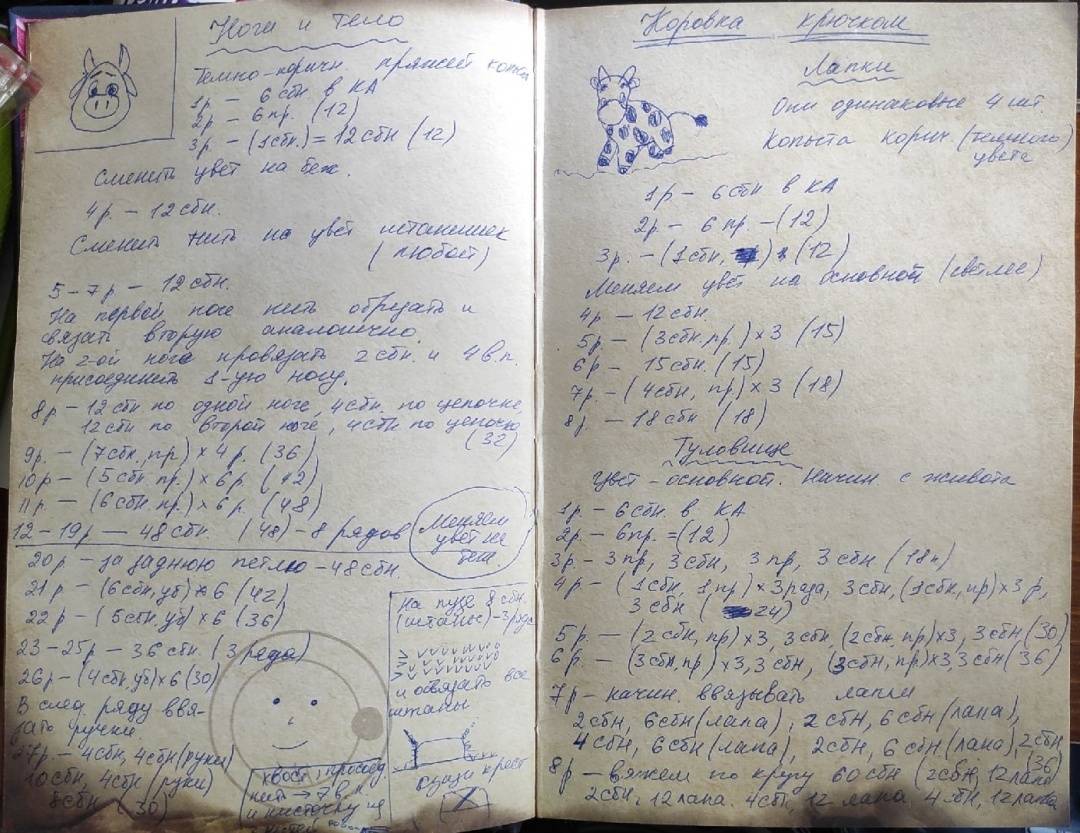 Ноги и тело
Темно-коричн. пряжей копыта
1р – 6 сбн в КА
2р – 6 пр. (12)
3р – (1сбн.) = 12 сбн (12)
Сменить цвет на беж.
4р. – 12 сбн.
Сменить нить на цвет
(любой)
5-7р – 12 сбн.
На первой ноге нить обрезать и
связать вторую аналогично.
На 2-ой ноге провязать 2 сбн. и 4 в.п.
присоединить 1-ую ногу.
8р – 12 сбн по одной ноге, 4 сбн. по цепочке,
12 сбн по второй ноге, 4 сбн по цепочке
(32)
9р. – (7сбн, пр) × 4 р. (36)
10р – (5 сбн. пр.) × 6 р. (42)
11р – (6 сбн. пр) × 6 р. (48)
12-19р — 48 сбн. (48) – 8 рядов
Меняем
цвет на
беж.
20р – за заднюю петлю – 48 сбн.
21р – (6сбн, уб) × 6 (42)
22р – (5 сбн. уб) × 6 (36)
23-25р – 36 сбн. (3 ряда)
26р – (4 сбн, уб) × 6 (30)
В след. ряду ввя-
зать ручки.
27р. – 4 сбн, 4 сбн (руки)
10 сбн, 4 сбн (руки)
8 сбн (30)
На пузе 8 сбн.
(штаны) – 3 ряда
и обвязать все
штаны
сзади крест
X
хвост: присоед.
нить → 7 в.п.
и кисточку из
Коровка крючком
Лапки
Они одинаковые 4 шт
Копыта корич. (темного)
цвета
1р – 6 сбн в КА
2р – 6 пр – (12)
3р. – (1 сбн, ) (12)
Меняем цвет на основной (светлее)
4р – 12 сбн
5р – (3 сбн, пр.) × 3 (15)
6р – 15 сбн. (15)
7р – (4 сбн, пр) × 3 (18)
8р – 18 сбн (18)
Туловище
Цвет – основной. Начин с живота
1р – 6 сбн. в КА
2р – 6 пр. = (12)
3р. – 3 пр, 3 сбн, 3 пр, 3 сбн (18п)
4р – (1 сбн, 1, пр) × 3 раза, 3 сбн, (1 сбн, пр) × 3 р,
3 сбн (24)
5р. – (2 сбн, пр) × 3, 3 сбн, (2 сбн. пр) × 3, 3 сбн (30)
6р. – (3 сбн, пр) × 3, 3 сбн, (3 сбн, пр) × 3, 3 сбн (36)
7р – начин. ввязывать лапки
2 сбн, 6 сбн (лапа), 2 сбн, 6 сбн (лапа),
4 сбн, 6 сбн (лапа), 2 сбн, 6 сбн (лапа), 2 сбн
(36)
8р – вяжем по кругу 60 сбн (2 сбн, 12 лапа
2 сбн, 12 лапа. 4 сбн, 12 лапа 4 сбн, 12 лапа